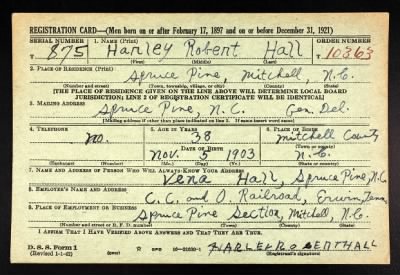 REGISTRATION CARD—(Men born on or after February 17, 1897 and on or before December 31, 1921)
SERIAL NUMBER 1. NAME (Print) ORDER NUMBER
T 875 Harley Robert Hall T 10363
(First) (Middle) (Last)
2. PLACE OF RESIDENCE (Print)
Spruce Pine, Mitchell, N.C.
(Number and street) (Town, township, village, or city) (County) (State)
[THE PLACE OF RESIDENCE GIVEN ON THE LINE ABOVE WILL DETERMINE LOCAL BOARD
JURISDICTION; LINE 2 OF REGISTRATION CERTIFICATE WILL BE IDENTICAL]
3. MAILING ADDRESS
Spruce Pine, N.C. Gen. Del.
[Mailing address if other than place indicated on line 2. If same insert word same]
4. TELEPHONE 5. AGE IN YEARS 6. PLACE OF BIRTH
no. 38 Mitchell County
DATE OF BIRTH (Town or county)
Nov. 5 1903 N.C.
(Exchange) (Number) (Mo.) (Day) (Yr.) (State or country)
7. NAME AND ADDRESS OF PERSON WHO WILL ALWAYS KNOW YOUR ADDRESS
Vena Hall, Spruce Pine, N.C.
8. EMPLOYER'S NAME AND ADDRESS
C. C. and O. Railroad, Erwin, Tenn.
9. PLACE OF EMPLOYMENT OR BUSINESS
Spruce Pine Section, Mitchell, N.C.
(Number and street or R. F. D. number) (Town) (County) (State)
I AFFIRM THAT I HAVE VERIFIED ABOVE ANSWERS AND THAT THEY ARE TRUE.
D. S. S. Form 1
(Revised 1-1-42) (over) GPO 16—21630-1
(Registrant's signature)